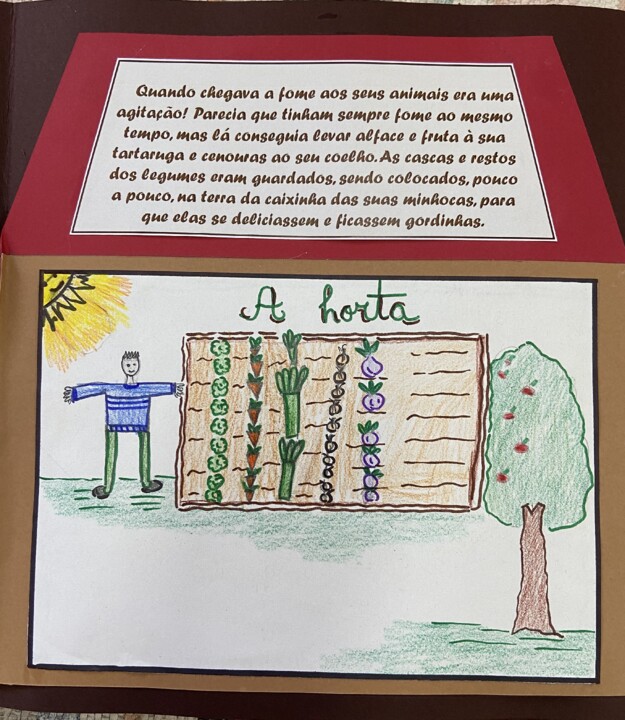 Quando chegava a fome aos seus animais era uma
agitação! Parecia que tinham sempre fome ao mesmo
tempo, mas lá conseguia levar alface e fruta à sua
tartaruga e cenouras ao seu coelho. As cascas e restos
dos legumes eram guardados, sendo colocados, pouco
a pouco, na terra da caixinha das suas minhocas, para
que elas se deliciassem e ficassem gordinhas.
A horta